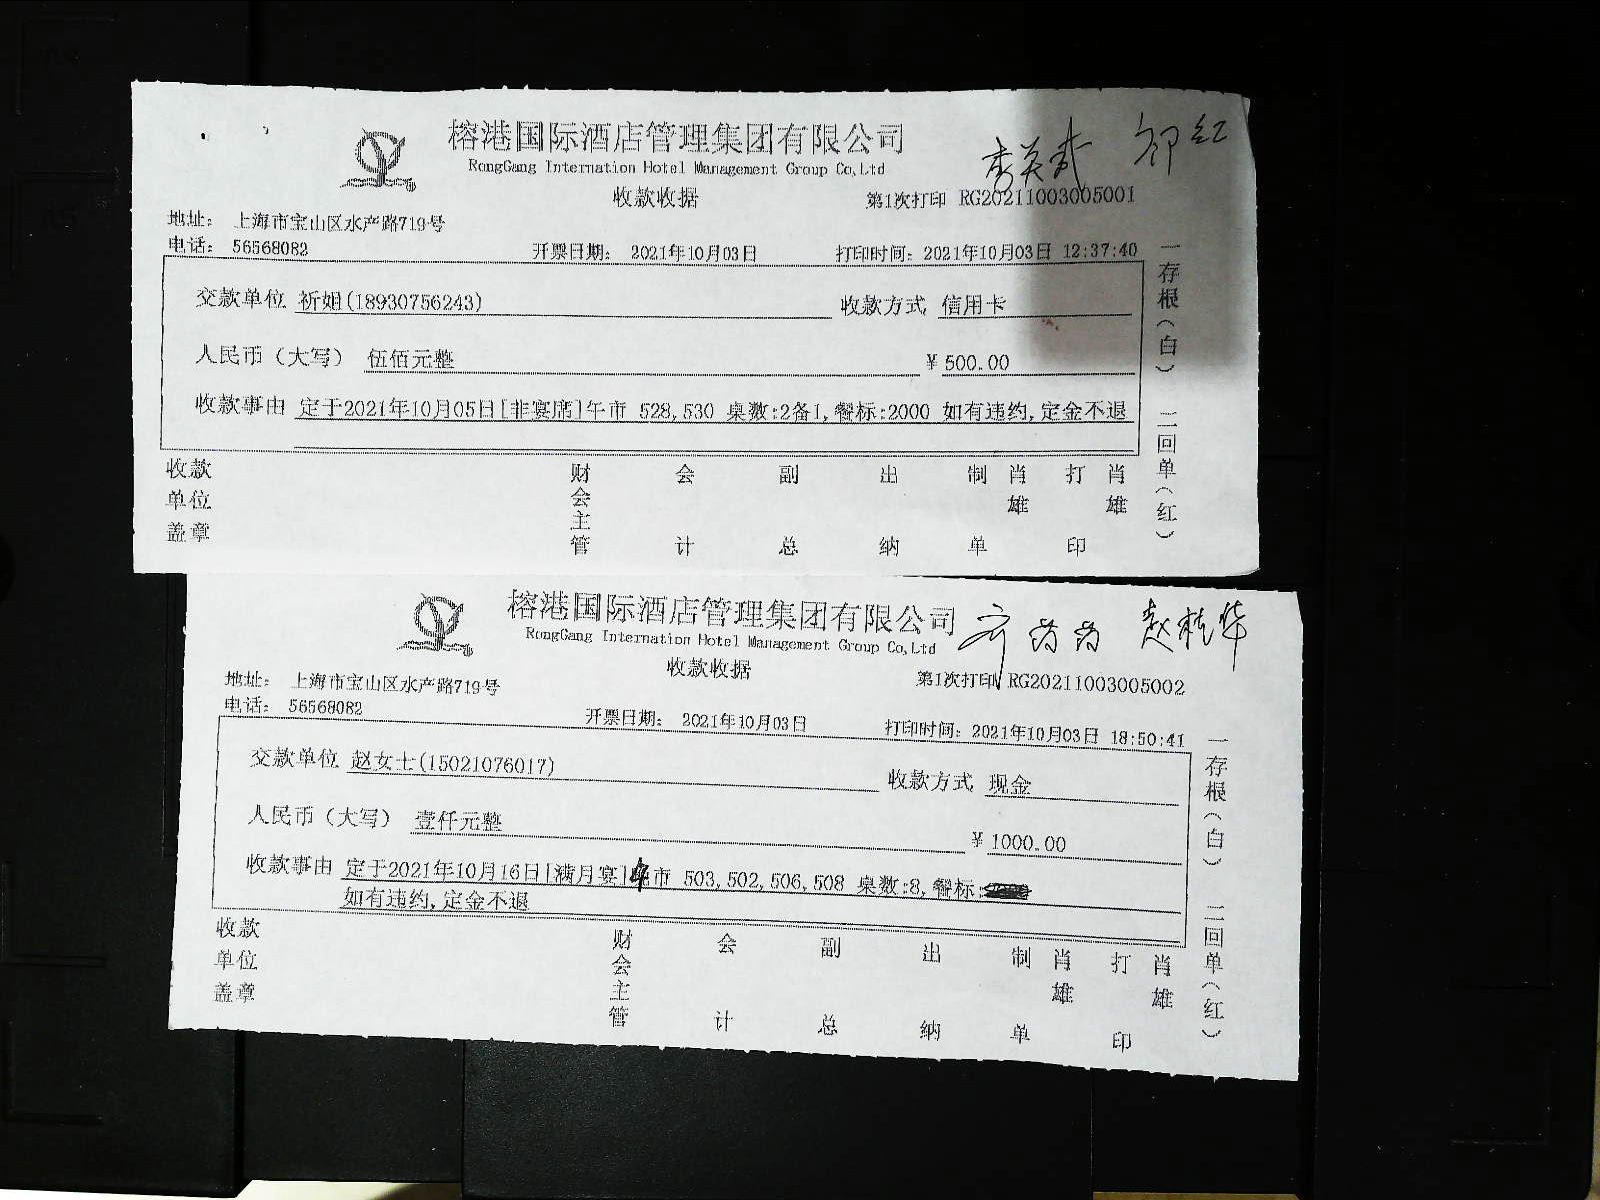 榕港国际酒店管理集团有限公司
RongGang International Hotel Management Group Co,Ltd
收款收据
第1次打印 RG20211003005001
地址： 上海市宝山区水产路719号
电话： 56568082
开票日期： 2021年10月03日
打印时间：2021年10月03日 12:37:40
交款单位 祈姐(18930756243)
收款方式 信用卡
人民币（大写） 伍佰元整
￥500.00
收款事由 定于2021年10月05日[非宴席]午市 528,530 桌数:2备1,餐标:2000 如有违约,定金不退
收款单位盖章
财会主管
会计
副总
出纳
制单
肖雄
打印
肖雄
一存根（白） 二回单（红）
榕港国际酒店管理集团有限公司
赵桂华
RongGang International Hotel Management Group Co,Ltd
收款收据
第1次打印 RG20211003005002
地址： 上海市宝山区水产路719号
电话： 56568082
开票日期： 2021年10月03日
打印时间：2021年10月03日 18:50:41
交款单位 赵女士(15021076017)
收款方式 现金
人民币（大写） 壹仟元整
￥1000.00
收款事由 定于2021年10月16日[满月宴]午市 503,502,506,508 桌数:8,餐标:
如有违约,定金不退
收款单位盖章
财会主管
会计
副总
出纳
制单
肖雄
打印
肖雄
一存根（白） 二回单（红）